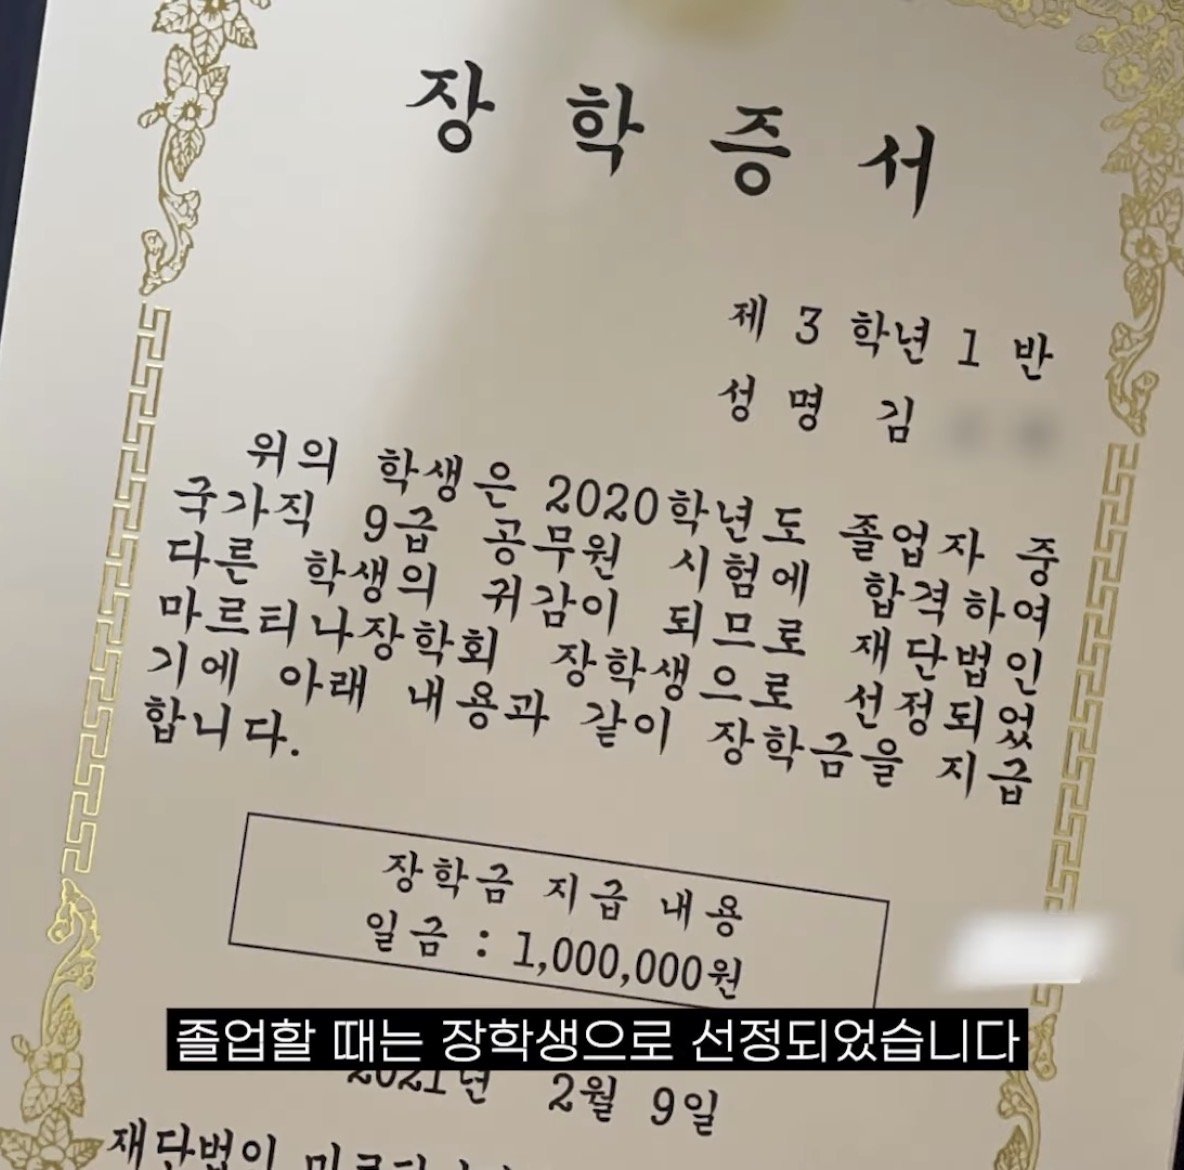 장학증서
제 3 학년 1 반
성 명 김
위의 학생은 2020학년도 졸업자 중
국가직 9급 공무원 시험에 합격하여
다른 학생의 귀감이 되므로 재단법인
마르티나장학회 장학생으로 선정되었
기에 아래 내용과 같이 장학금을 지급
합니다.
장학금 지급 내용
일금 : 1,000,000원
졸업할 때는 장학생으로 선정되었습니다
2021년 2월 9일